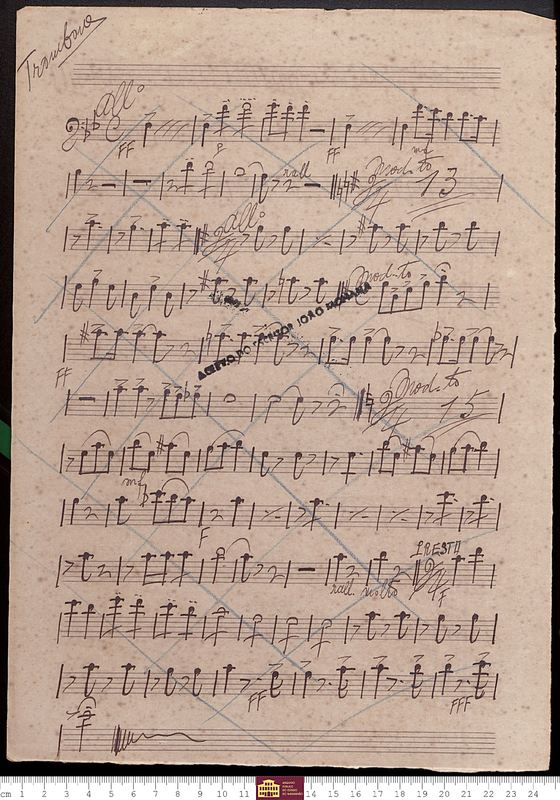 Trombone
All°
FF P FF mf
rall Mod-to 13
All°
Mod-to
ACERVO DO SENHOR JOÃO MOHANA
FF
Mod-to 15
mf
F
PRESTO
rall. molto FF
FF FFF
cm 1 2 3 4 5 6 7 8 9 10 11 12 13 14 15 16 17 18 19 20 21 22 23 24